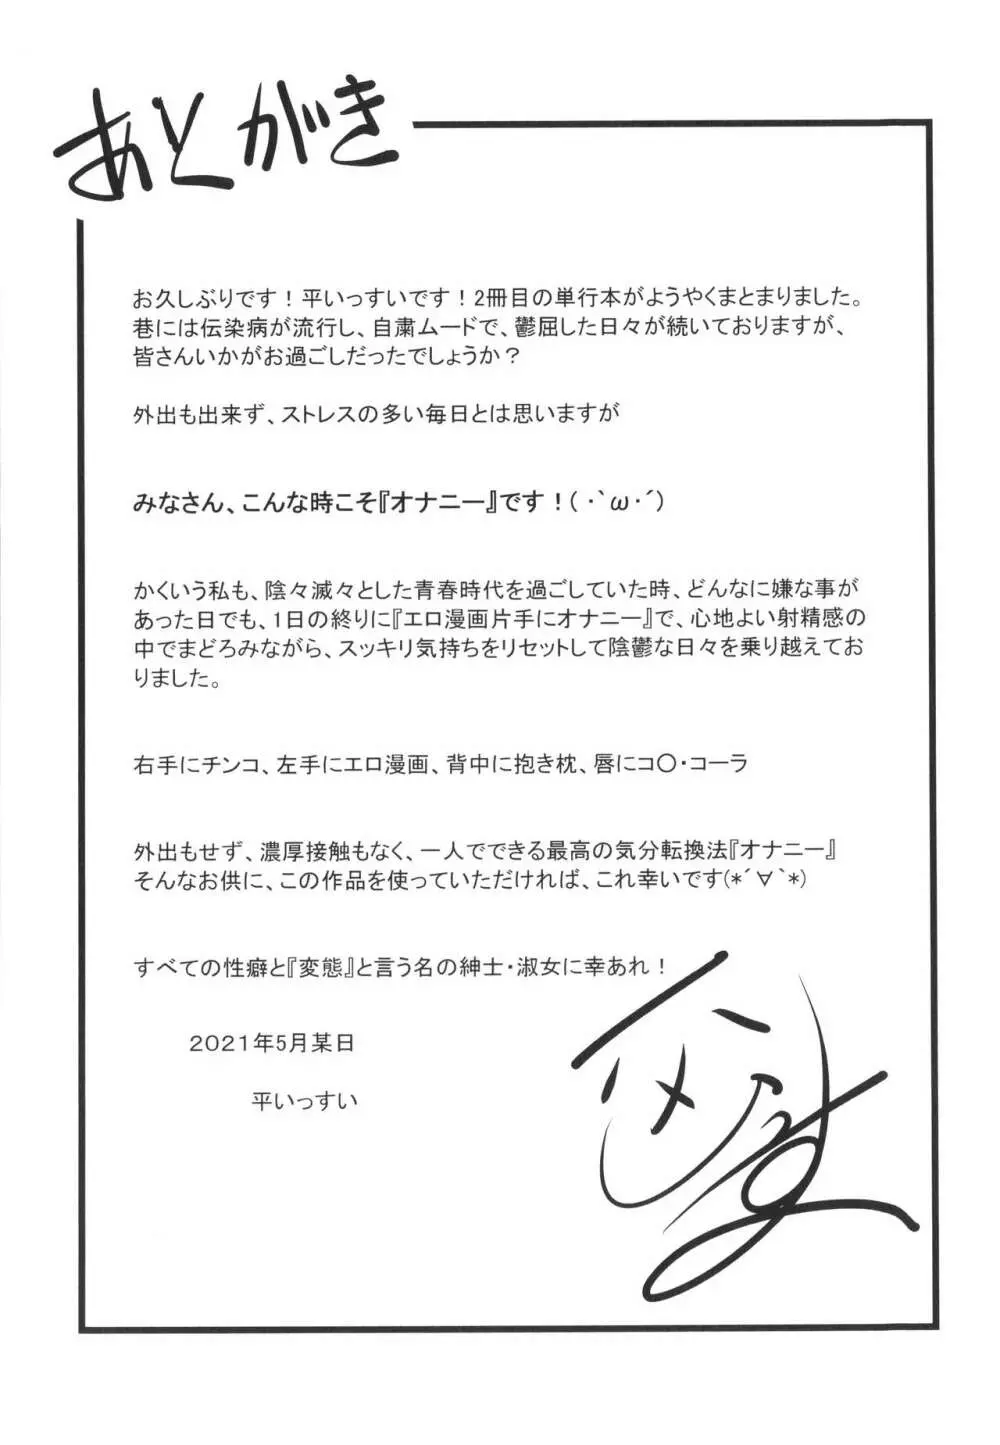 あとがき
お久しぶりです！平いっすいです！2冊目の単行本がようやくまとまりました。
巷には伝染病が流行し、自粛ムードで、鬱屈した日々が続いておりますが、
皆さんいかがお過ごしだったでしょうか？
外出も出来ず、ストレスの多い毎日とは思いますが
みなさん、こんな時こそ『オナニー』です！( ･`ω･´)
かくいう私も、陰々滅々とした青春時代を過ごしていた時、どんなに嫌な事が
あった日でも、1日の終りに『エロ漫画片手にオナニー』で、心地よい射精感の
中でまどろみながら、スッキリ気持ちをリセットして陰鬱な日々を乗り越えてお
りました。
右手にチンコ、左手にエロ漫画、背中に抱き枕、唇にコ〇・コーラ
外出もせず、濃厚接触もなく、一人でできる最高の気分転換法『オナニー』
そんなお供に、この作品を使っていただければ、これ幸いです(*´∀`*)
すべての性癖と『変態』と言う名の紳士・淑女に幸あれ！
２０２１年５月某日
平いっすい